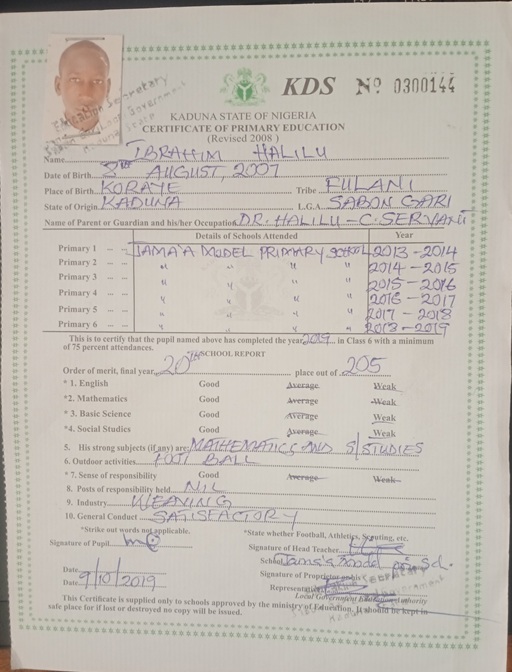 KDS Nº 0300144
KADUNA STATE OF NIGERIA
CERTIFICATE OF PRIMARY EDUCATION
(Revised 2008)
Name IBRAHIM HALILU
Date of Birth 3RD AUGUST, 2007
Place of Birth KORAYE Tribe FULANI
State of Origin KADUNA L.G.A. SABON GARI
Name of Parent or Guardian and his/her Occupation DR. HALILU - C. SERVANT
Details of Schools Attended Year
Primary 1 JAMA'A MODEL PRIMARY SCHOOL 2013 - 2014
Primary 2 " " " " 2014 - 2015
Primary 3 " " " " 2015 - 2016
Primary 4 " " " " 2016 - 2017
Primary 5 " " " " 2017 - 2018
Primary 6 " " " " 2018 - 2019
This is to certify that the pupil named above has completed the year 2019 in Class 6 with a minimum
of 75 percent attendances.
SCHOOL REPORT
Order of merit, final year 20TH place out of 205
* 1. English Good Average Weak
*2. Mathematics Good Average Weak
* 3. Basic Science Good Average Weak
*4. Social Studies Good Average Weak
5. His strong subjects (if any) are: MATHEMATICS AND S/STUDIES
6. Outdoor activities FOOT BALL
* 7. Sense of responsibility Good Average Weak
8. Posts of responsibility held NIL
9. Industry WEAVING
10. General Conduct SATISFACTORY
*Strike out words not applicable. *State whether Football, Athletics, Scouting, etc.
Signature of Pupil Signature of Head Teacher
School Jama'a model pri. scl.
Date Signature of Proprietor or his
Date 9/10/2019 Representative
Local Government Education Authority
This Certificate is supplied only to schools approved by the ministry of Education. It should be kept in
safe place for if lost or destroyed no copy will be issued.